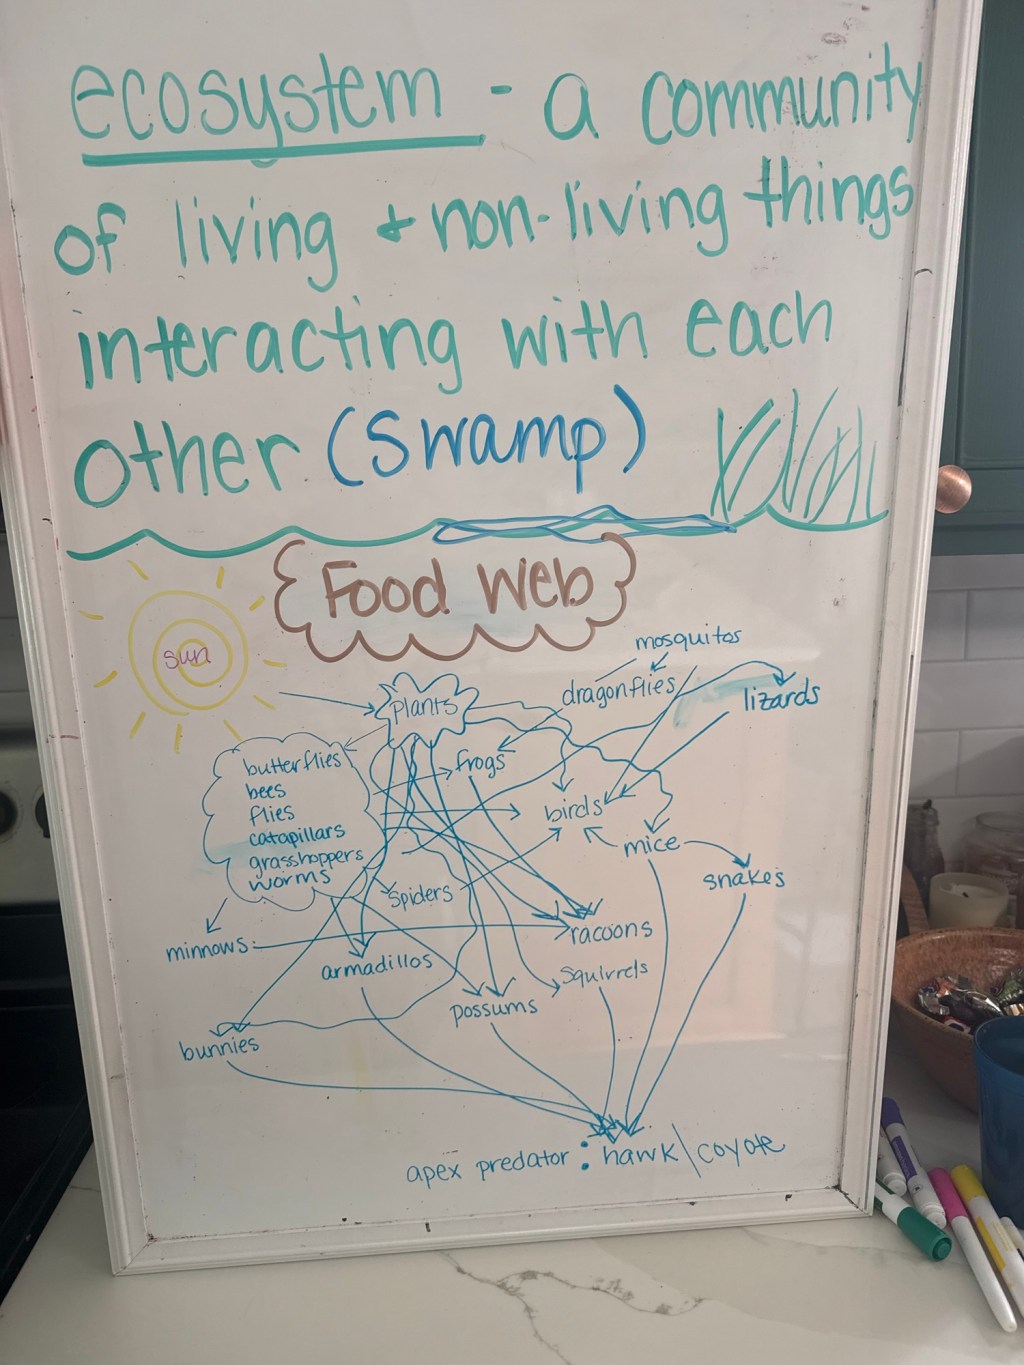 ecosystem - a community
of living + non-living things
interacting with each
other (swamp)
Food Web
sun
mosquitos
dragonflies
lizards
plants
butterflies
bees
flies
catapillars
grasshoppers
worms
frogs
birds
mice
snakes
spiders
minnows
racoons
armadillos
squirrels
possums
bunnies
apex predator: hawk\coyote